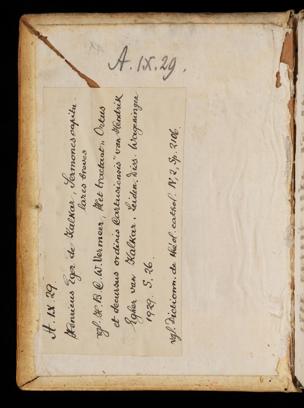 A. IX. 29.
A. IX. 29
Henricus Egr. de Kalkar, Sermones capitu-
lares breves
vgl. H. B. C. W. Vermeer, Het tractaat „Ortus
et decursus ordinis Cartusiensis" van Hendrik
Egher van Kalkar. Leiden, diss. Wageningen
1929. S. 26.
vgl. Dictionn. de théol. cathol. IV, 2, Sp. 2106.